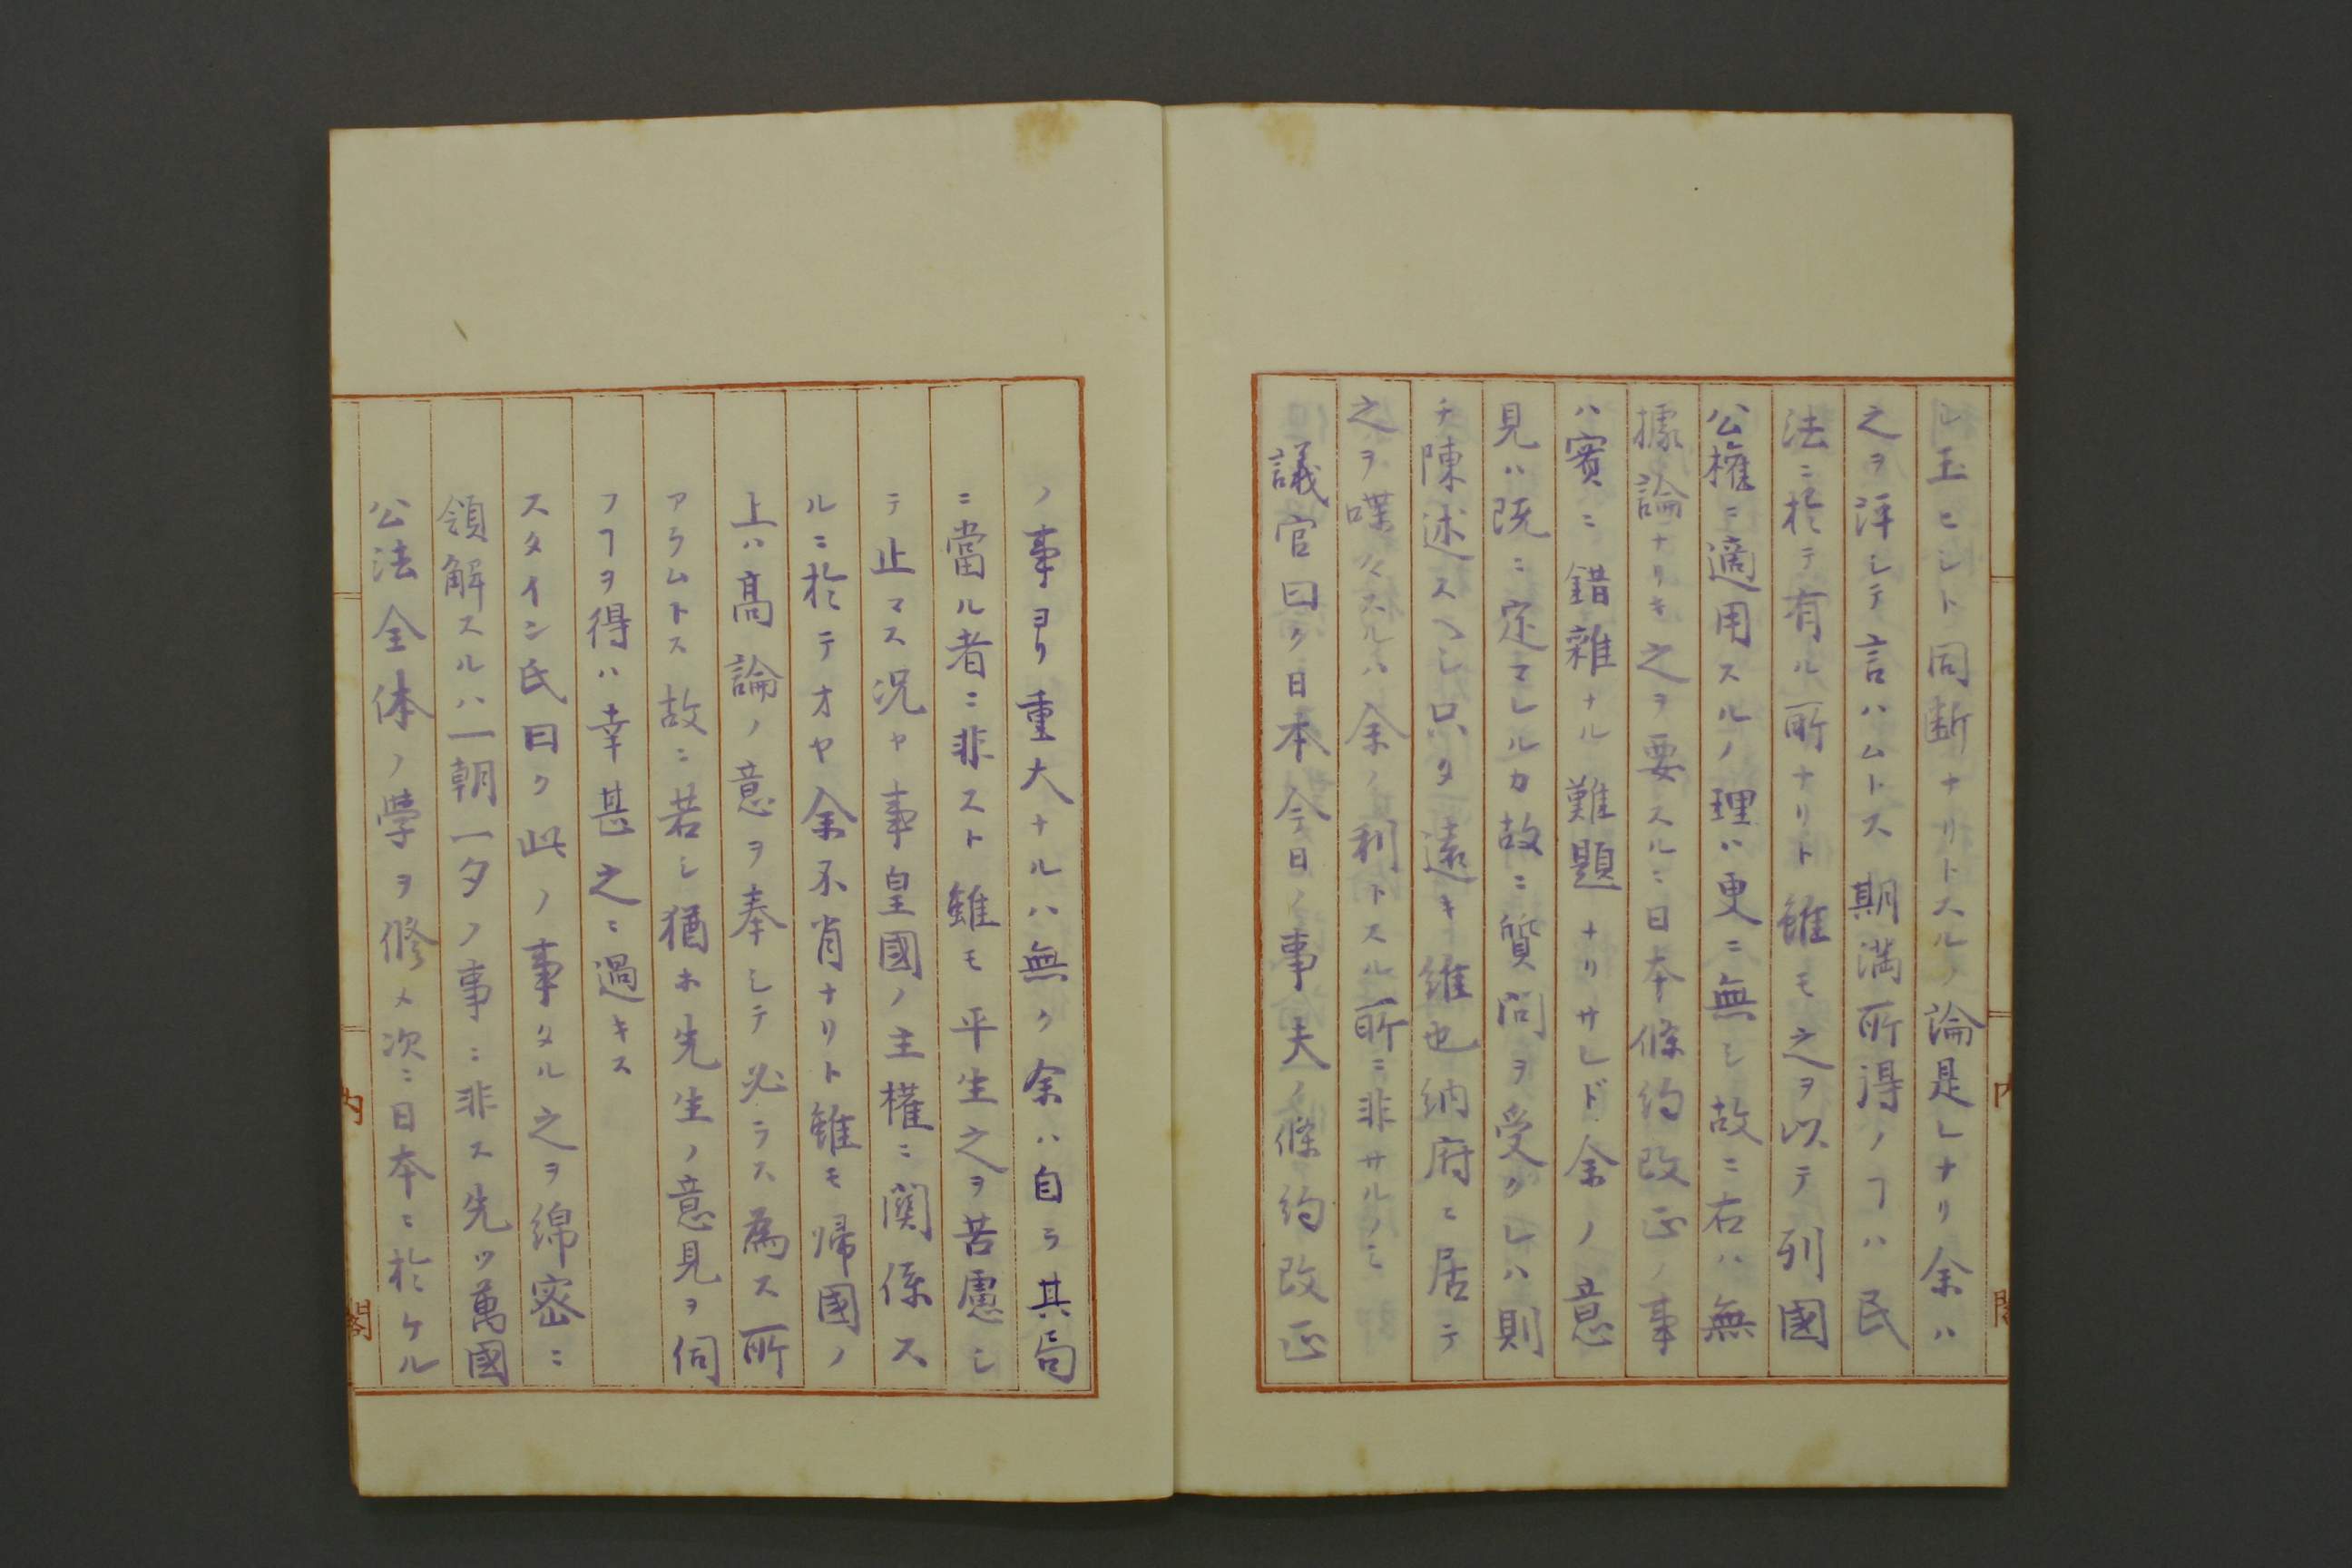 シ玉ヒシト同断ナリトスルノ論是レナリ余ハ
之ヲ評シテ言ハムトス期満所得ノヿハ民
法ニ於テ有ル所ナリト雖モ之ヲ以テ列國
公權ニ適用スルノ理ハ更ニ無シ故ニ右ハ無
據論ナリキ之ヲ要スルニ日本條約改正ノ事
ハ實ニ錯雜ナル難題ナリサレド余ノ意
見ハ既ニ定マレルカ故ニ質問ヲ受クレハ則
チ陳述スヘシ只タ遠キ維也納府ニ居テ
之ヲ喋々スルハ余ノ利トスル所ニ非サルノミ
議官曰ク日本今日ノ事夫ノ條約改正
ノ事ヨリ重大ナルハ無ク余ハ自ラ其局
ニ當ル者ニ非スト雖モ平生之ヲ苦慮シ
テ止マス況ヤ事皇國ノ主權ニ關係ス
ルニ於テオヤ余不肖ナリト雖モ帰國ノ
上ハ高論ノ意ヲ奉シテ必ラス為ス所
アラムトス故ニ若シ猶ホ先生ノ意見ヲ伺
フヿヲ得ハ幸甚之ニ過キス
スタイン氏曰ク此ノ事タル之ヲ綿密ニ
領解スルハ一朝一夕ノ事ニ非ス先ツ萬國
公法全体ノ學ヲ修メ次ニ日本ニ於ケル
内
閣